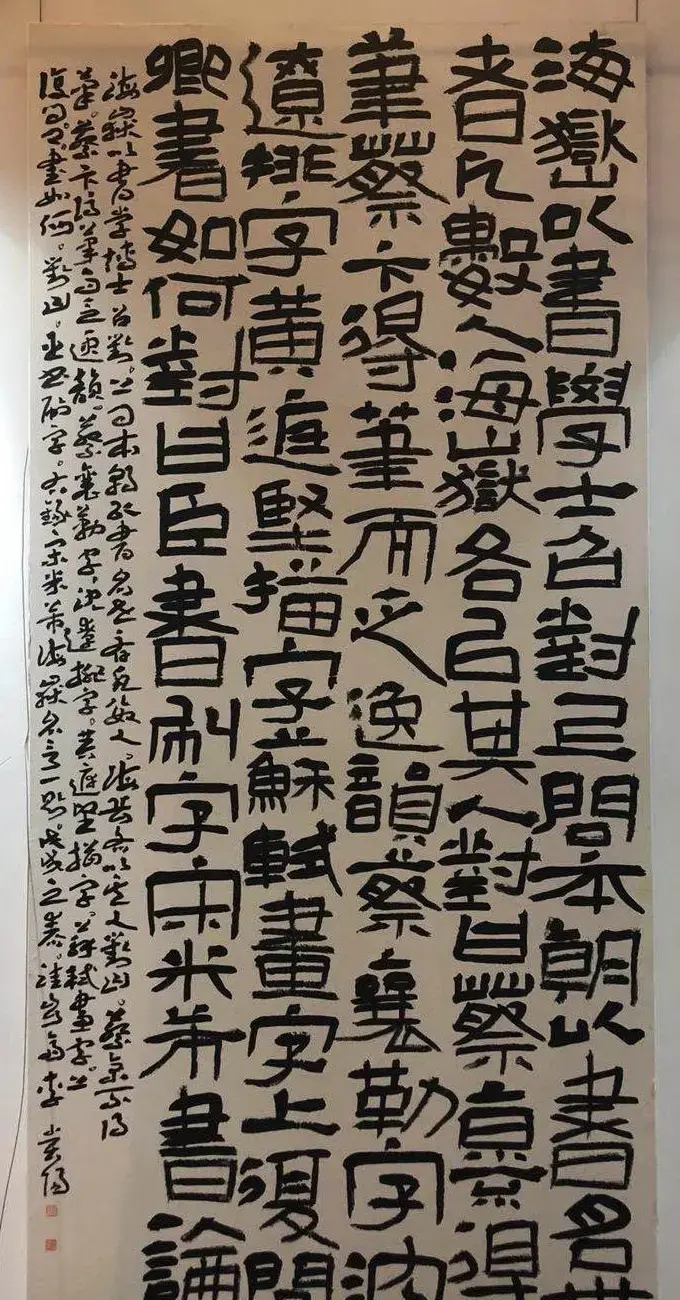 海嶽以書學士召對上問本朝以書名世
者凡數人海嶽各以其人對曰蔡京得
筆蔡卞得筆而乏逸韻蔡襄勒字沈
遼排字黃庭堅描字蘇軾畫字上復問
卿書如何對曰臣書刷字宋米芾書論
海嶽以書學博士召對。上問本朝以書名世者凡數人。海岳各以其人對曰。蔡京不得
筆。蔡卞得筆而乏逸韻。蔡襄勒字。沈遼排字。黃庭堅描字。蘇軾畫字。上
復問。卿書如何。對曰。臣書刷字。右錄宋米芾海嶽名言一則。戊戌之春。李